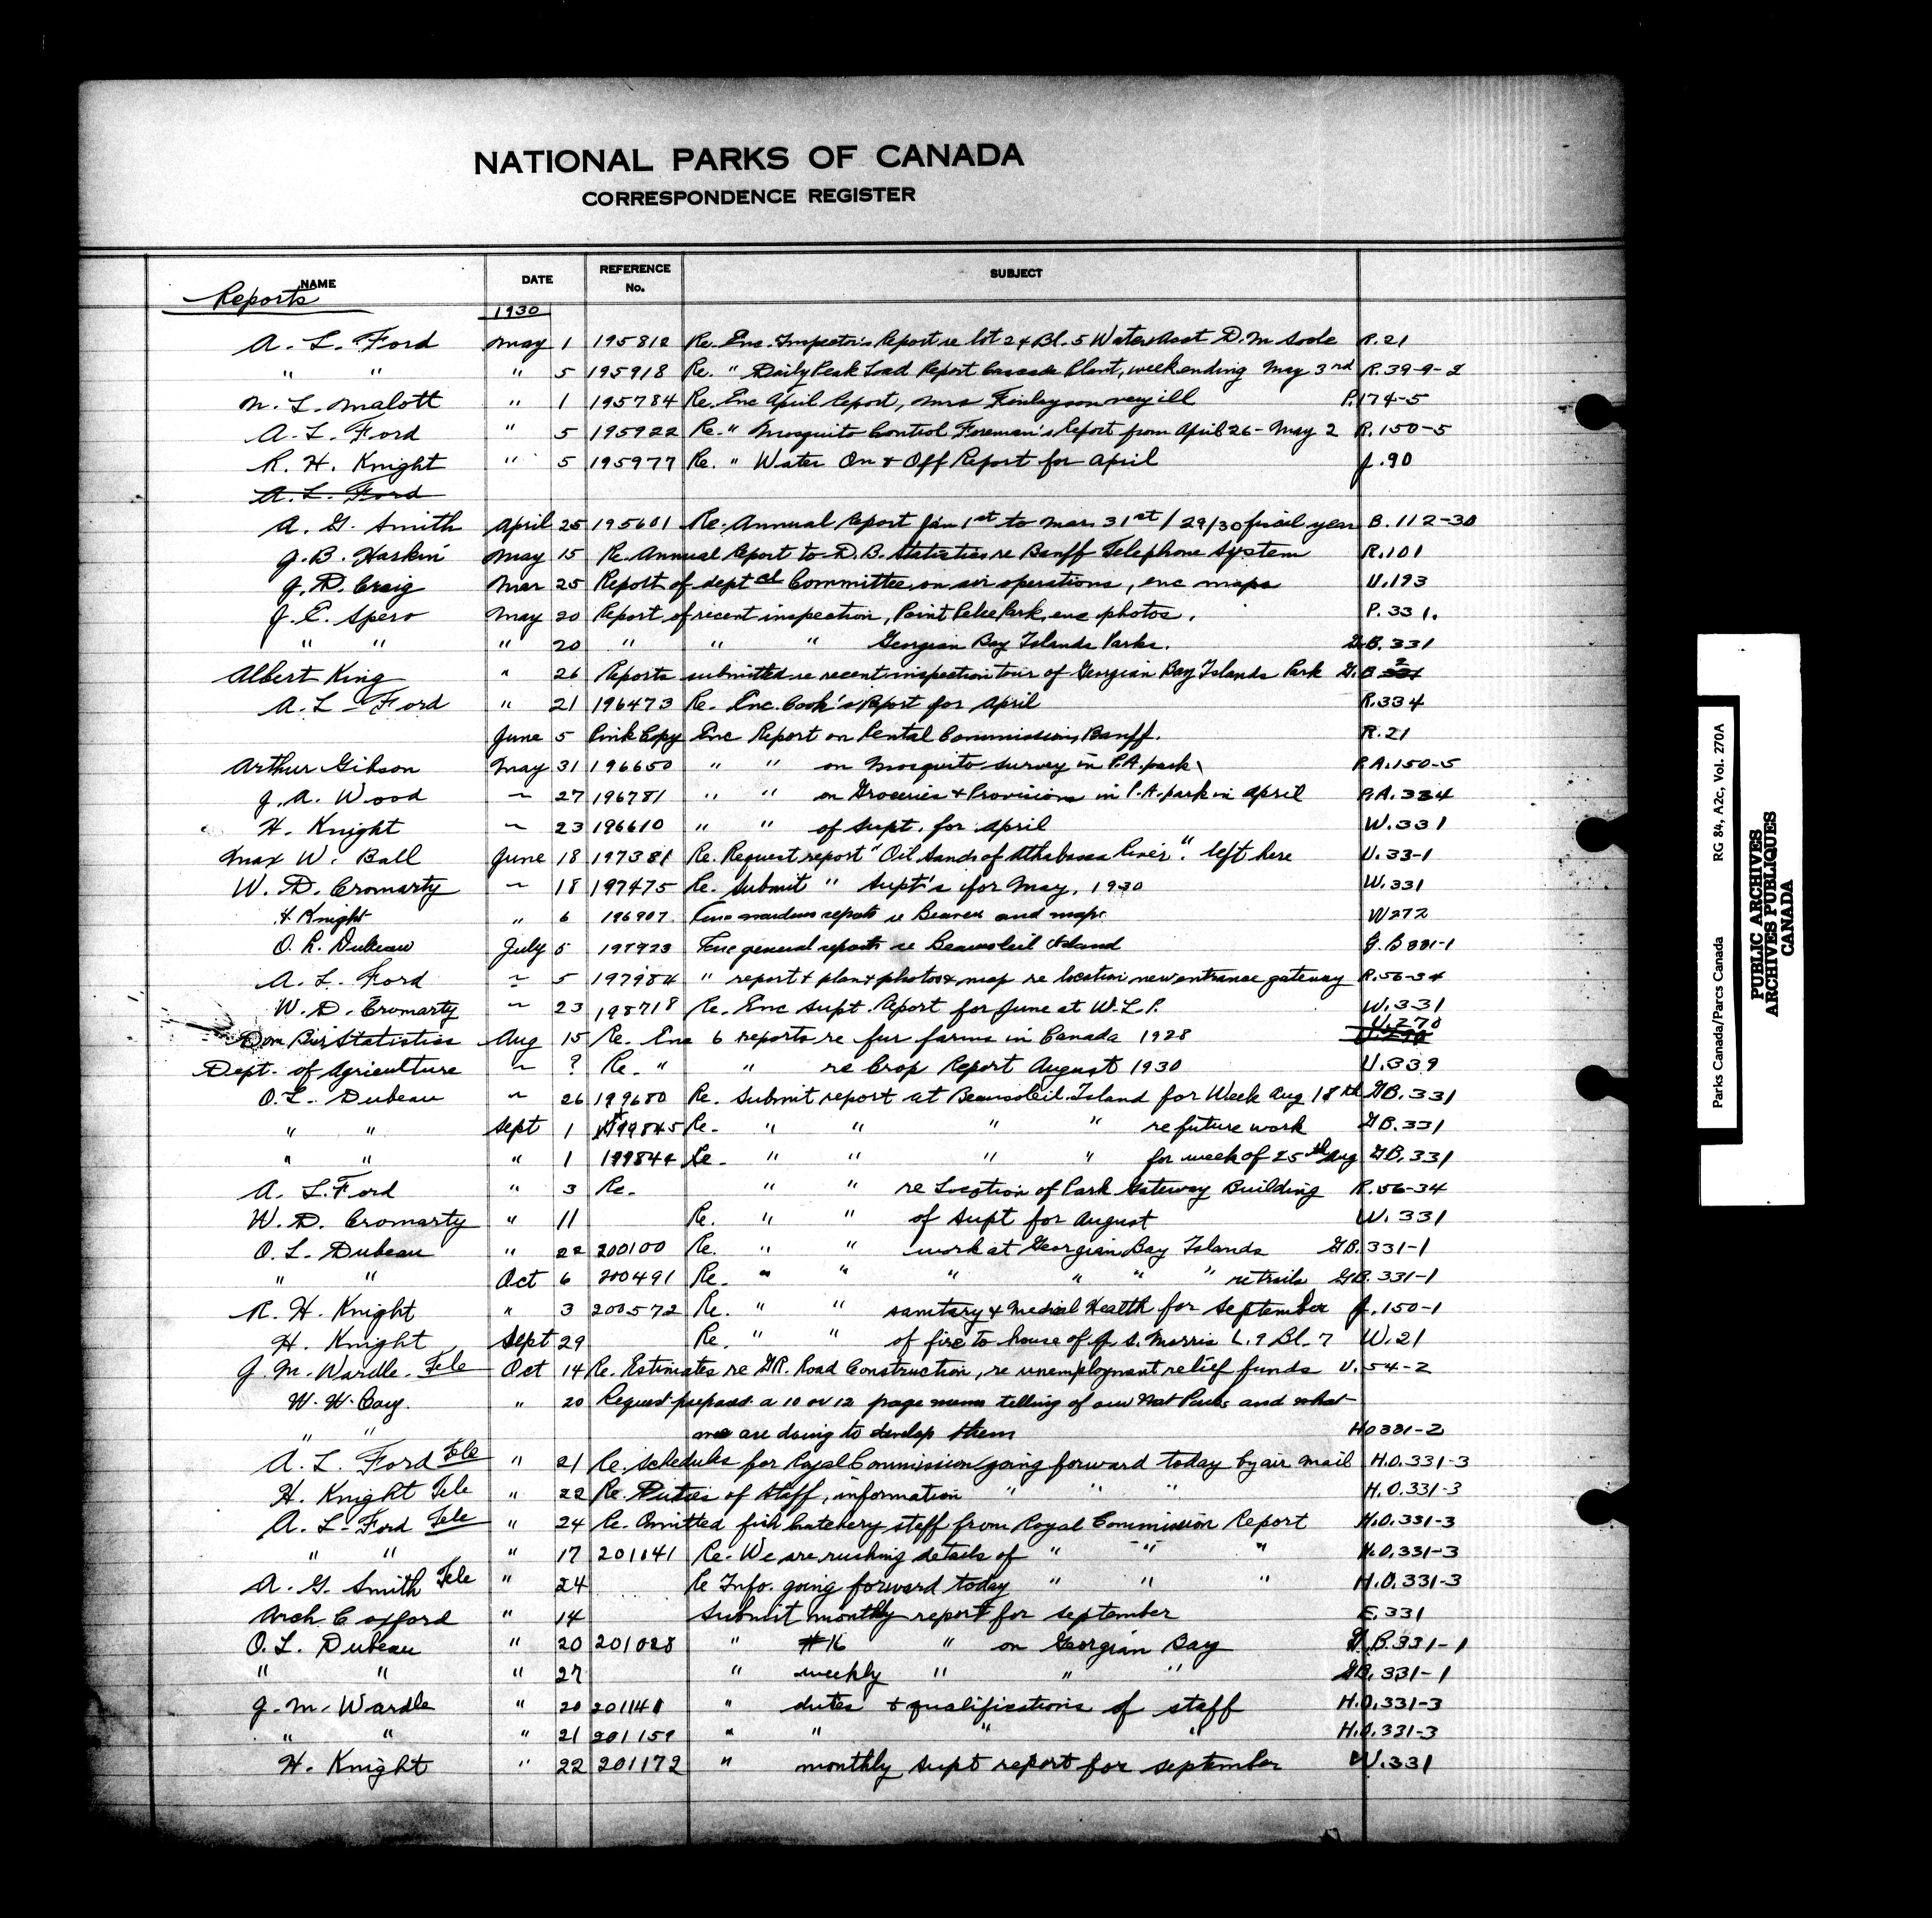 NATIONAL PARKS OF CANADA
CORRESPONDENCE REGISTER
NAME DATE REFERENCE No. SUBJECT
Reports
1930
A. L. Ford May 1 195812 Re. Enc. Inspector's Report re lot 24 Bl. 5 Water Acct D. M. Soole R.21
" " " 5 195918 Re. " Daily Peak Load Report Cascade Plant, week ending May 3rd R.39-9-2
N. L. Malott " 1 195784 Re. Enc April Report, Mrs Finlayson very ill P.174-5
A. L. Ford " 5 195922 Re. " Mosquito Control Foreman's Report from April 26 - May 2 R.150-5
R. H. Knight " 5 195977 Re. " Water On & Off Report for April J.90
A. L. Ford
A. G. Smith April 25 195601 Re. Annual Report Jan 1st to Mar. 31st / 29/30 fiscal year B.112-30
J. B. Harkin May 15 Re. Annual Report to D. B. Statistics re Banff Telephone System R.101
J. D. Craig Mar 25 Report of deptal Committee on air operations, enc maps U.193
J. E. Spero May 20 Report of recent inspection, Point Pelee Park, enc photos. P.331.
" " " 20 " " " Georgian Bay Islands Parks. G.B.331
Albert King " 26 Reports submitted re recent inspection tour of Georgian Bay Islands Park G.B 2
A. L. Ford " 21 196473 Re. Enc. Cook's Report for April R.334
June 5 Pink Copy Enc Report on Rental Commission, Banff. R.21
Arthur Gibson May 31 196650 " " on Mosquito survey in P.A. park P.A.150-5
J. A. Wood ~ 27 196781 " " on Groceries & Provisions in P.A. park in April P.A.334
H. Knight ~ 23 196610 " " of Supt. for April W.331
Max W. Ball June 18 197381 Re. Request report "Oil Sands of Athabasca River". left here U.33-1
W. D. Cromarty ~ 18 197475 Re. Submit " Supt's for May, 1930 W.331
H Knight " 6 196907 Enc wardens reports re Beaver and maps W272
O. L. Dubeau July 5 197923 Enc general reports re Beausoleil Island G.B331-1
A. L. Ford ~ 5 197984 " report & plan & photos & map re location new entrance gateway R.56-34
W. D. Cromarty ~ 23 198718 Re. Enc Supt. Report for June at W.L.P. W.331
U.270
Dom Bur Statistics Aug 15 Re. Enc 6 reports re fur farms in Canada 1928
Dept. of Agriculture ~ ? Re. " " re Crop Report August 1930 U.339
O. L. Dubeau ~ 26 199680 Re. Submit report at Beausoleil Island for Week Aug 18th GB.331
" " Sept 1 199845 Re. " " " " re future work GB.331
" " " 1 199844 Re. " " " " for week of 25th Aug GB.331
A. L. Ford " 3 Re. " " re Location of Park Gateway Building R.56-34
W. D. Cromarty " 11 Re. " " of Supt for August W.331
O. L. Dubeau " 22 200100 Re. " " work at Georgian Bay Islands GB.331-1
" " Oct 6 200491 Re. " " " " " " re trails GB.331-1
R. H. Knight " 3 200572 Re. " " sanitary & Medical Health for September J.150-1
H. Knight Sept 29 Re. " " of fire to house of J. S. Morris L.9 Bl.7 W.21
J. M. Wardle. Tele Oct 14 Re. Estimates re G.R. Road Construction, re unemployment relief funds U.54-2
W. W. Cory. " 20 Request prepare a 10 or 12 page memo telling of our Nat Parks and what
" " we are doing to develop them HO331-2
A. L. Ford Tele " 21 Re. schedules for Royal Commission going forward today by air mail H.O.331-3
H. Knight Tele " 22 Re. Duties of Staff, information " " " H.O.331-3
A. L. Ford Tele " 24 Re. Omitted fish hatchery staff from Royal Commission Report H.O.331-3
" " " 17 201041 Re. We are rushing details of " " " H.O.331-3
A. G. Smith Tele " 24 Re Info. going forward today " " " H.O.331-3
Arch C Oxford " 14 Submit monthly report for September E.331
O. L. Dubeau " 20 201028 " #16 " on Georgian Bay G.B.331-1
" " " 27 " weekly " " " GB.331-1
J. M. Wardle " 20 201141 " duties & qualifications of staff H.O.331-3
" " " 21 201159 " " " " H.O.331-3
H. Knight " 22 201172 " monthly supt report for September W.331
Parks Canada/Parcs Canada RG 84, A2c, Vol. 270A
PUBLIC ARCHIVES
ARCHIVES PUBLIQUES
CANADA